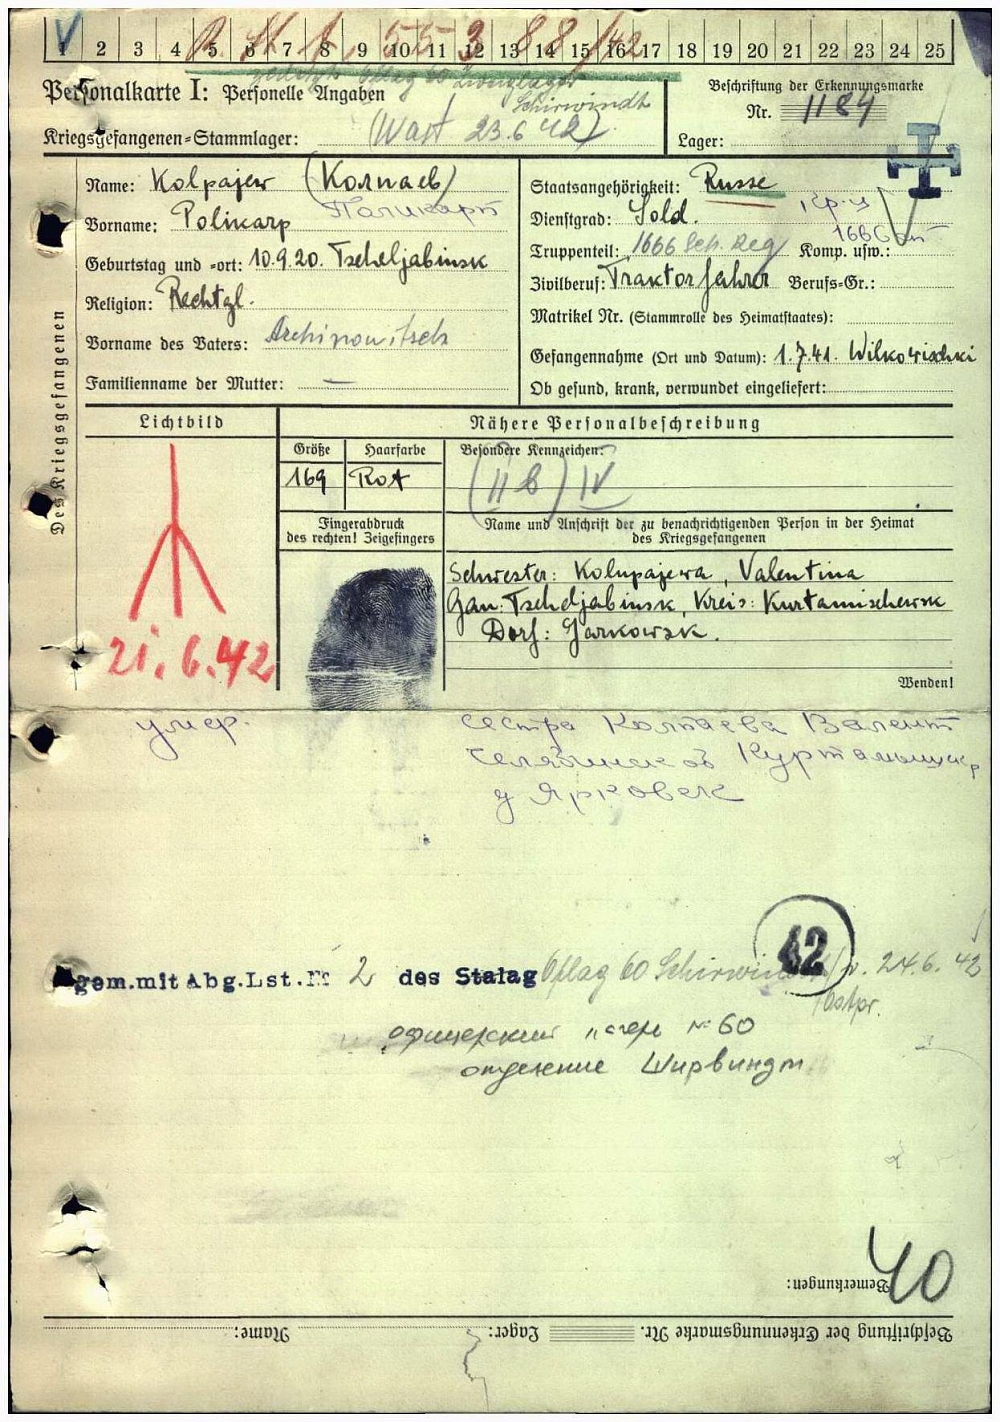 1 2 3 4 5 6 7 8 9 10 11 12 13 14 15 16 17 18 19 20 21 22 23 24 25
Oflag 60 Zweiglager
Schirwindt
Personalkarte I: Personelle Angaben
Beschriftung der Erkennungsmarke
Nr. 1184
Kriegsgefangenen-Stammlager: (Wast 23.6.42)
Lager:
Des Kriegsgefangenen
Name: Kolpajew (Колпаев)
Поликарп
Vorname: Polikarp
Geburtstag und -ort: 10.9.20. Tscheljabinsk
Religion: Rechtgl.
Vorname des Vaters: Archipowitsch
Familienname der Mutter: —
Staatsangehörigkeit: Russe
Dienstgrad: Sold.
Кр-ц
1666
Truppenteil: 1666 Sch. Reg Komp. usw.:
Zivilberuf: Traktorfahrer Berufs-Gr.:
Matrikel Nr. (Stammrolle des Heimatstaates):
Gefangennahme (Ort und Datum): 1.7.41. Wilkowischki
Ob gesund, krank, verwundet eingeliefert:
Lichtbild
21.6.42
Nähere Personalbeschreibung
Größe Haarfarbe Besondere Kennzeichen:
169 Rot (II b) IV
Fingerabdruck
des rechten! Zeigefingers
Name und Anschrift der zu benachrichtigenden Person in der Heimat
des Kriegsgefangenen
Schwester: Kolupajewa, Valentina
Gau: Tscheljabinsk, Kreis: Kurtamischewsk
Dorf: Jarkowsk.
Wenden!
умер.
сестра Колпаева Валент
Челябинск об Куртамышск р
д Ярковск
42
gem.mit Abg.Lst.Nr 2 des Stalag Oflag 60 Schirwindt v. 24.6.42
Ostpr.
офицерский лагерь № 60
отделение Ширвиндт
40
Bemerkungen:
Beschriftung der Erkennungsmarke Nr. Lager: Name: